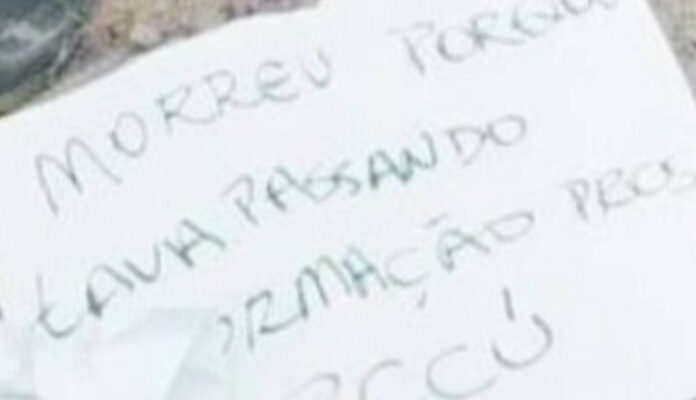 MORREU PORQU
tAVA PASSANDO
ORMAÇÃO PROS
CCÚ